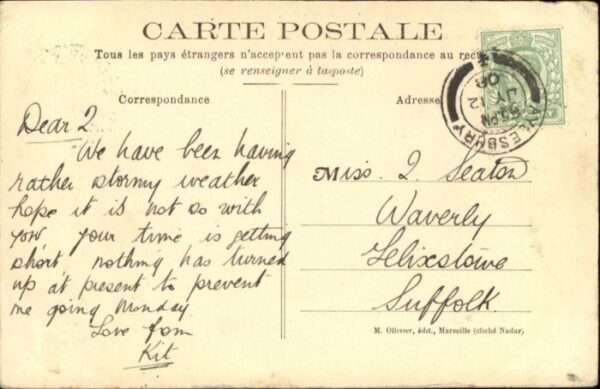 CARTE POSTALE
Tous les pays étrangers n'acceptent pas la correspondance au recto
(se renseigner à la poste)
Correspondance
Adresse
AYLESBURY
PM
JY 12
08
Dear 2
We have been having
rather stormy weather
hope it is not so with
you your time is getting
short nothing has turned
up at present to prevent
me going Monday
Love from
Kit
Miss. 2 Seaton
Waverly
Felixstowe
Suffolk.
M. Ollivier, édit., Marseille (cliché Nadar)